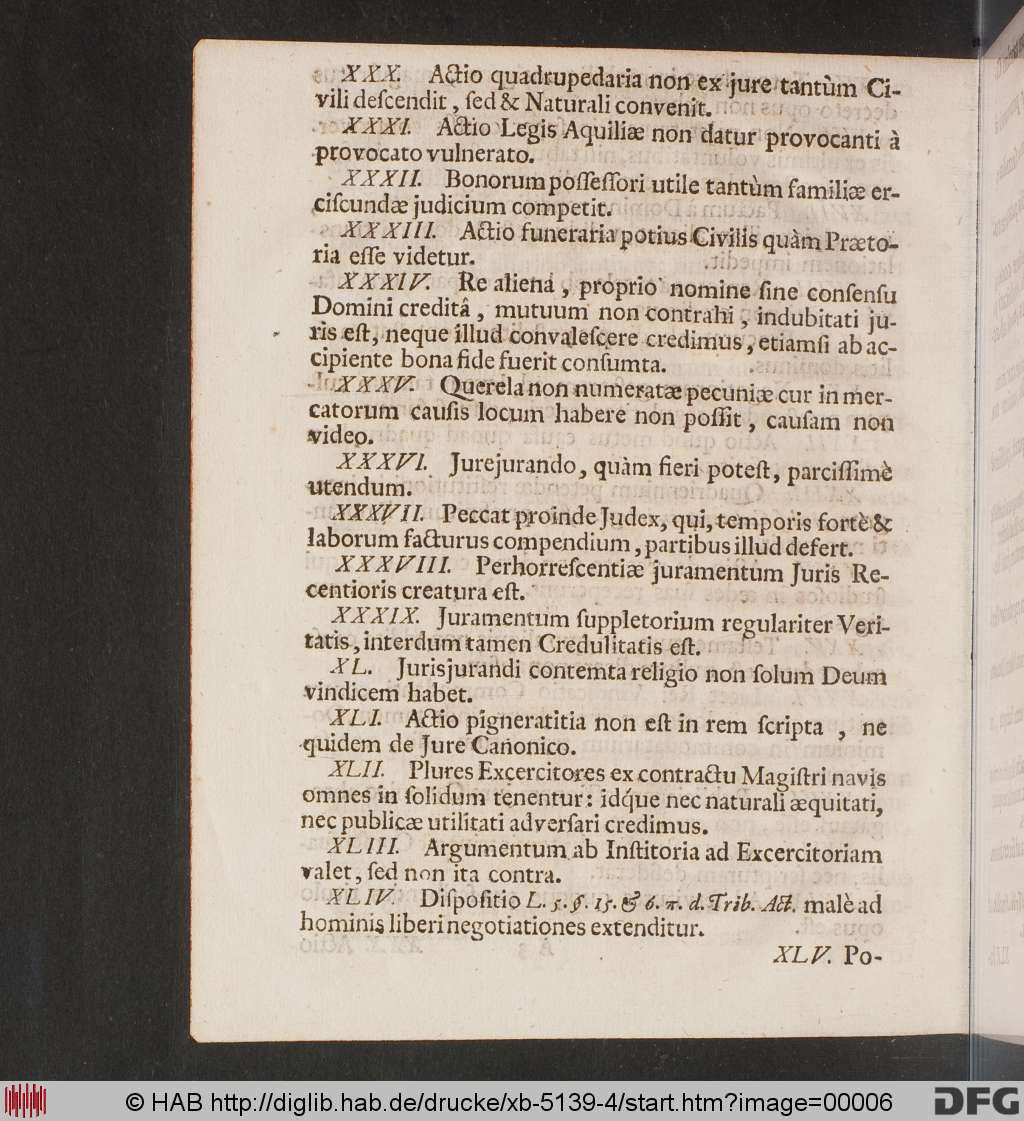 XXX. Actio quadrupedaria non ex jure tantùm Ci-
vili deſcendit, ſed & Naturali convenit.
XXXI. Actio Legis Aquiliæ non datur provocanti à
provocato vulnerato.
XXXII. Bonorum poſſeſſori utile tantùm familiæ er-
ciſcundæ judicium competit.
XXXIII. Actio funeraria potius Civilis quàm Præto-
ria eſſe videtur.
XXXIV. Re alienâ, proprio nomine ſine conſenſu
Domini creditâ, mutuum non contrahi, indubitati ju-
ris eſt, neque illud convaleſcere credimus, etiamſi ab ac-
cipiente bona fide fuerit conſumta.
XXXV. Querela non numeratæ pecuniæ cur in mer-
catorum cauſis locum habere non poſſit, cauſam non
video.
XXXVI. Jurejurando, quàm fieri poteſt, parciſſimè
utendum.
XXXVII. Peccat proinde Judex, qui, temporis fortè &
laborum facturus compendium, partibus illud defert.
XXXVIII. Perhorreſcentiæ juramentum Juris Re-
centioris creatura eſt.
XXXIX. Juramentum ſuppletorium regulariter Veri-
tatis, interdum tamen Credulitatis eſt.
XL. Jurisjurandi contemta religio non ſolum Deum
vindicem habet.
XLI. Actio pigneratitia non eſt in rem ſcripta, ne
quidem de Jure Canonico.
XLII. Plures Excercitores ex contractu Magiſtri navis
omnes in ſolidum tenentur: idq́ue nec naturali æquitati,
nec publicæ utilitati adverſari credimus.
XLIII. Argumentum ab Inſtitoria ad Excercitoriam
valet, ſed non ita contra.
XLIV. Diſpoſitio L. 5. §. 15. & 6. π. d. Trib. Act. malè ad
hominis liberi negotiationes extenditur.
XLV. Po-
© HAB http://diglib.hab.de/drucke/xb-5139-4/start.htm?image=00006
DFG